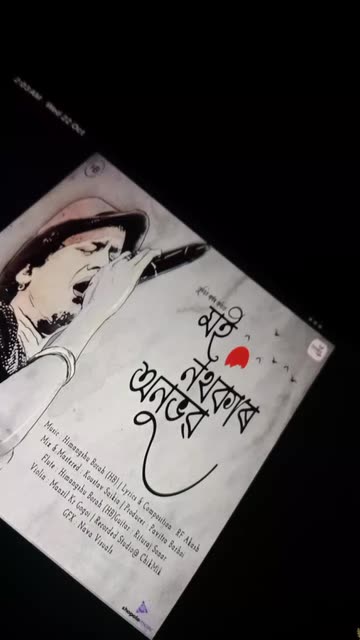 2:03AM Wed 22 Oct
মই
নথকাৰ
অনুভৱ
Music : Himangshu Borah (HB) | Lyrics & Composition : BF Akash
Mix & Mastered : Koustav Saikia | Producer : Pavitra Borhai
Flute : Himangshu Borah (HB)Guitar : Rituraj Sonar
Violin : Manzil Kr Gogoi | Recorded Studio@ ChikMik
GFX : Nava Visuals